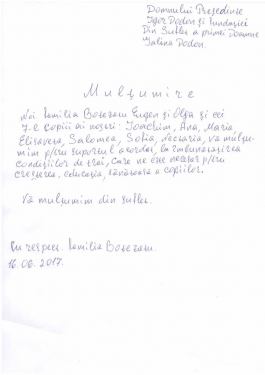 Domnului Președinte
Igor Dodon și Fundației
Din Suflet a primei Doamne
Galina Dodon.
Mulțumire
Noi familia Botezatu Eugen și Olga și cei
7-e copiii ai noștri: Ioachim, Ana, Maria,
Elisaveta, Salomea, Sofia, Nectaria, vă mulțu-
mim p/tru suportul acordat, la îmbunătățirea
condițiilor de trai, care ne este necesar p/tru
creșterea, educația, sănătatea a copiilor.
Vă mulțumim din suflet.
Cu respect familia Botezatu.
16.06.2017.